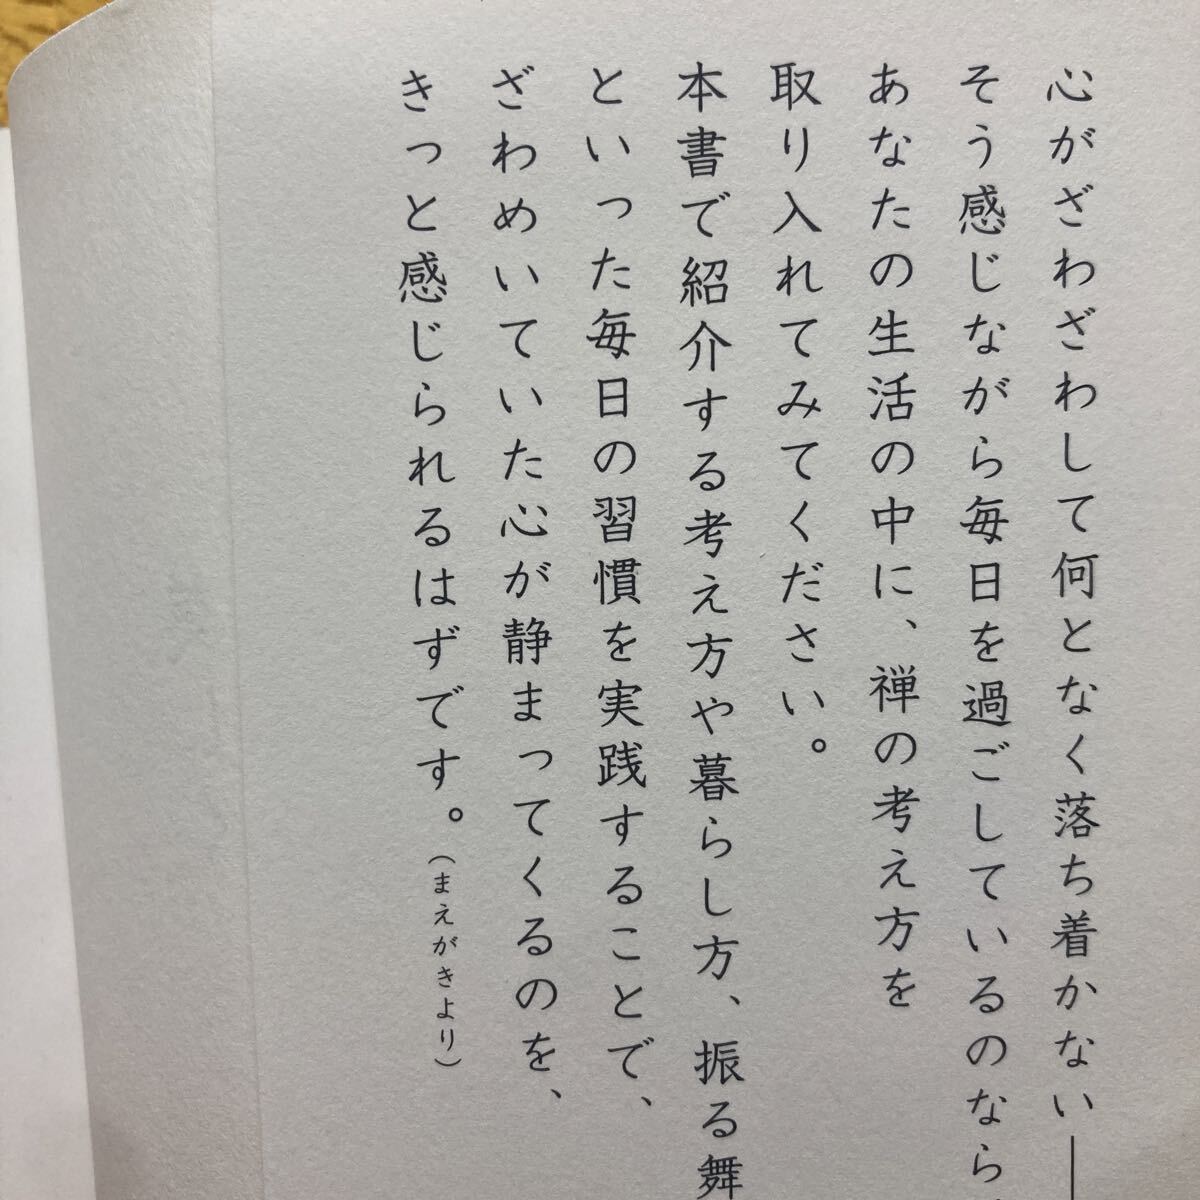 心がざわざわして何となく落ち着かない―
そう感じながら毎日を過ごしているのなら
あなたの生活の中に、禅の考え方を
取り入れてみてください。
本書で紹介する考え方や暮らし方、振る舞
といった毎日の習慣を実践することで、
ざわめいていた心が静まってくるのを、
きっと感じられるはずです。(まえがきより)